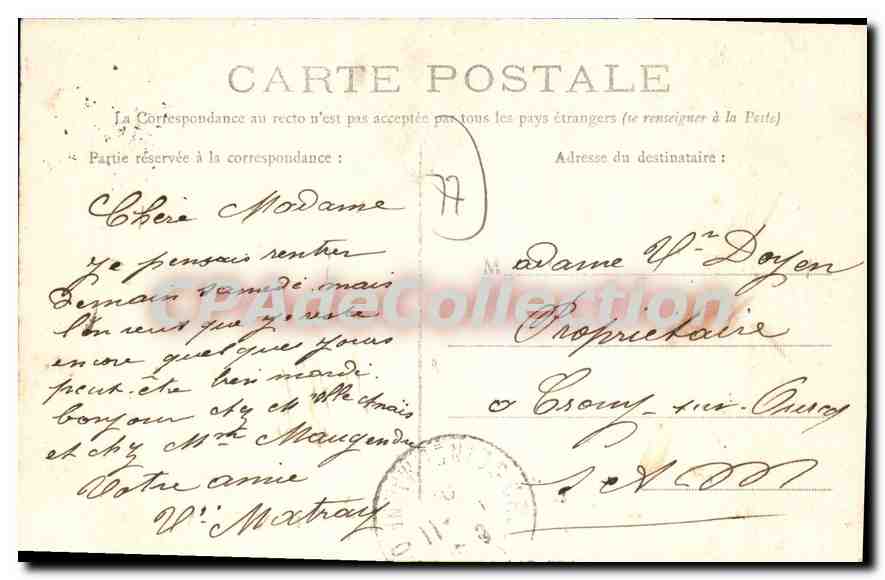 CARTE POSTALE
La Correspondance au recto n'est pas acceptée par tous les pays étrangers (se renseigner à la Poste)
Partie réservée à la correspondance :
Chère Madame
je pensais rentrer
demain samedi mais
l'on veut que je reste
encore quelques jours
peut-être bien mardi.
bonjour chez Mlle Anaïs
et chez Mme Maugendre
Votre amie
Vve Matray
77
Adresse du destinataire :
Madame Vve Doyen
Propriétaire
a Crouy-sur-Ourcq
S. A M
CPAdeCollection.com